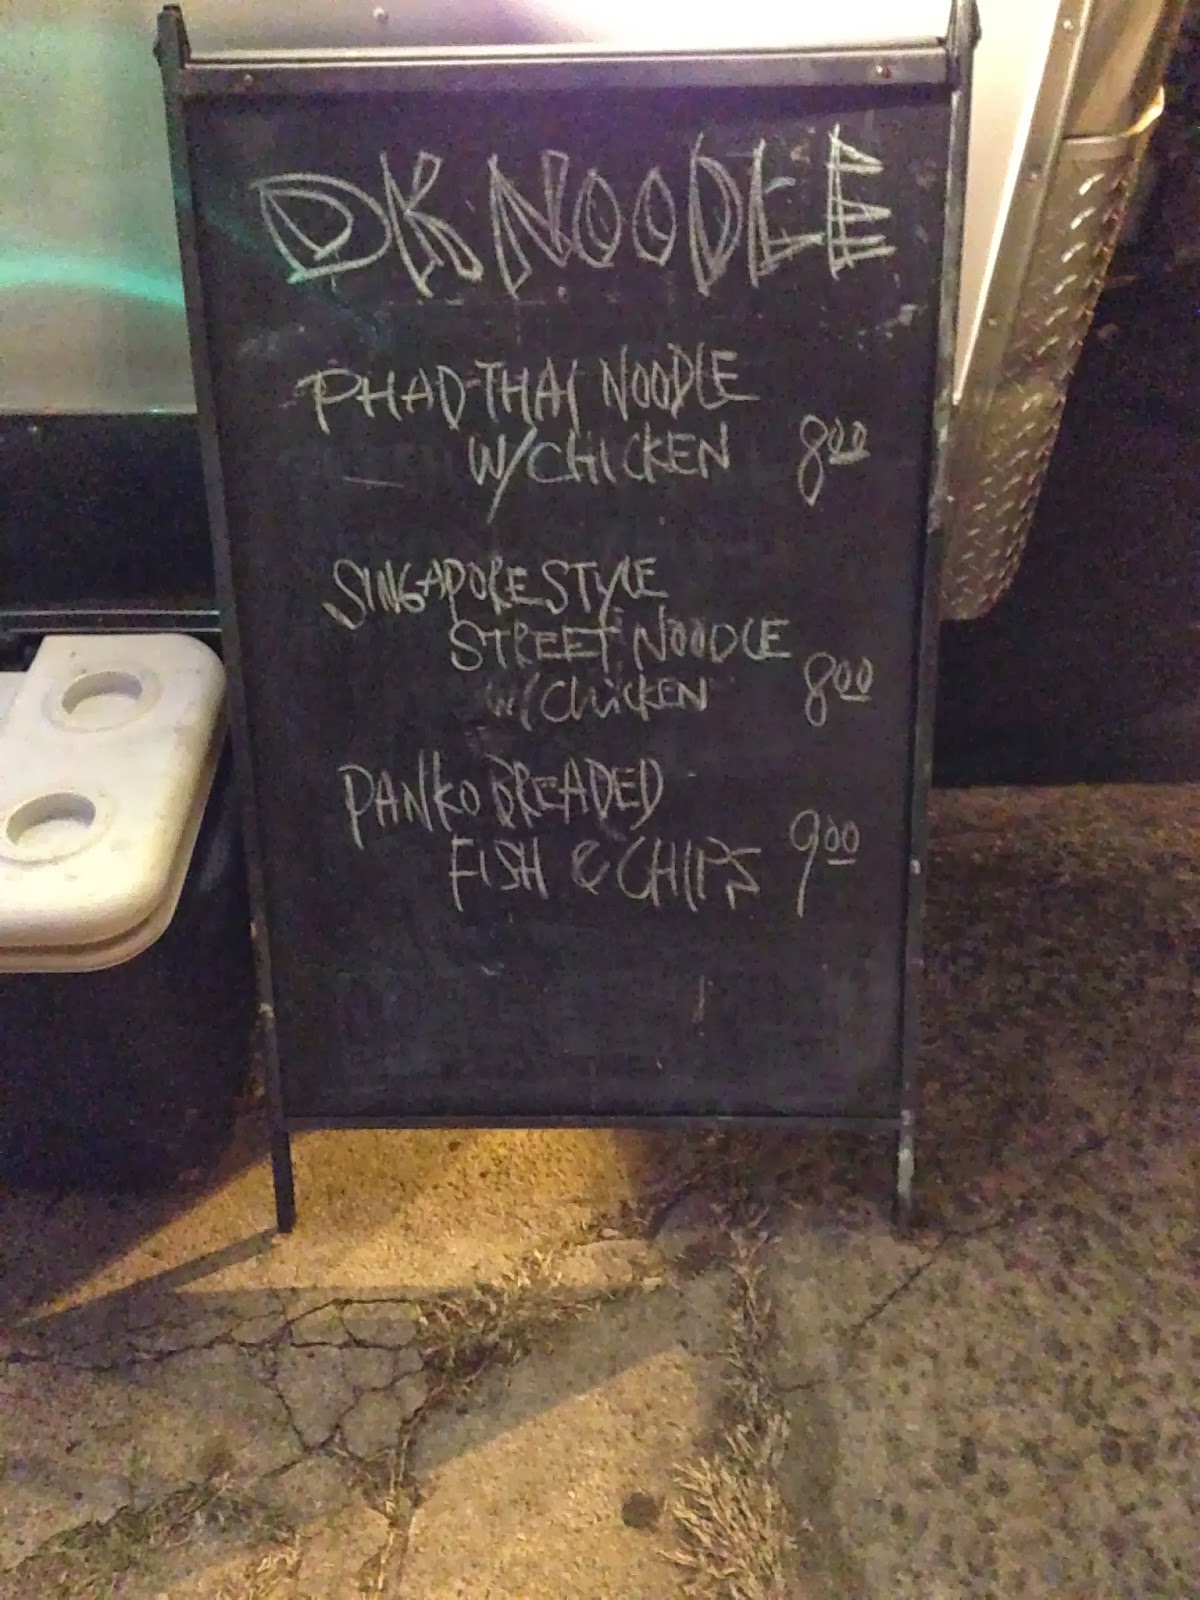 DK NOODLE
PHAD-THAI NOODLE
W/CHICKEN 8.00
SINGAPORE STYLE
STREET NOODLE
W/CHICKEN 8.00
PANKO BREADED
FISH & CHIPS 9.00